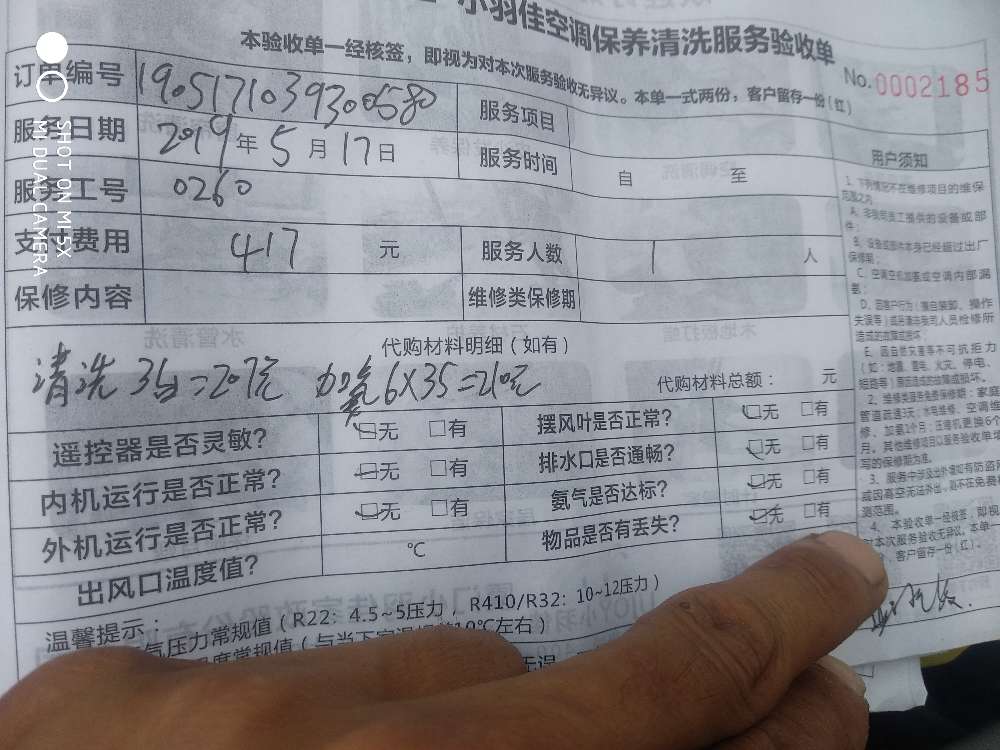 小羽佳空调保养清洗服务验收单
本验收单一经核签，即视为对本次服务验收无异议。本单一式两份，客户留存一份（红）
No.0002185
订单编号 1905171039300580 服务项目
服务日期 2019年5月17日 服务时间 自 至
服务工号 0260
支付费用 417 元 服务人数 1 人
保修内容 维修类保修期
代购材料明细（如有）
清洗3台=207元 加氨6X35=210元 代购材料总额： 元
遥控器是否灵敏？ 无 有 摆风叶是否正常？ 无 有
内机运行是否正常？ 无 有 排水口是否通畅？ 无 有
外机运行是否正常？ 无 有 氨气是否达标？ 无 有
出风口温度值？ ℃ 物品是否有丢失？ 无 有
温馨提示：
气压力常规值（R22：4.5~5压力，R410/R32：10~12压力）
温度常规值（与当下室温相差10℃左右）
无误
用户须知
1、下列情况不在维修项目的维保
范围之内
A、非我司员工提供的设备或部
件；
B、设备或部件本身已经超过出厂
保修期；
C、空调空机加氨或空调内部漏
氨；
D、因客户行为（擅自装卸、操作
失误等）或后清洁步司人员检修所
造成的故障或损坏；
E、因自然灾害等不可抗拒力
（如：地震、雷电、火灾、停电、
短路等）原因造成的故障或损坏。
2、维修类服务免费保修期：家庭
管道疏通3天；水电维修、空调维
修、加氨1个月；压缩机更换6个
月。其他维修项目以服务验收单填
写的保修期为准。
3、服务中涉及出外墙如有防盗网
或因高空无法外出，则不在免费检
测范围。
4、本验收单一经核签，即视
对本次服务验收无异议。本单一
份，客户留存一份（红）。
SHOT ON MI 5X
MI DUAL CAMERA